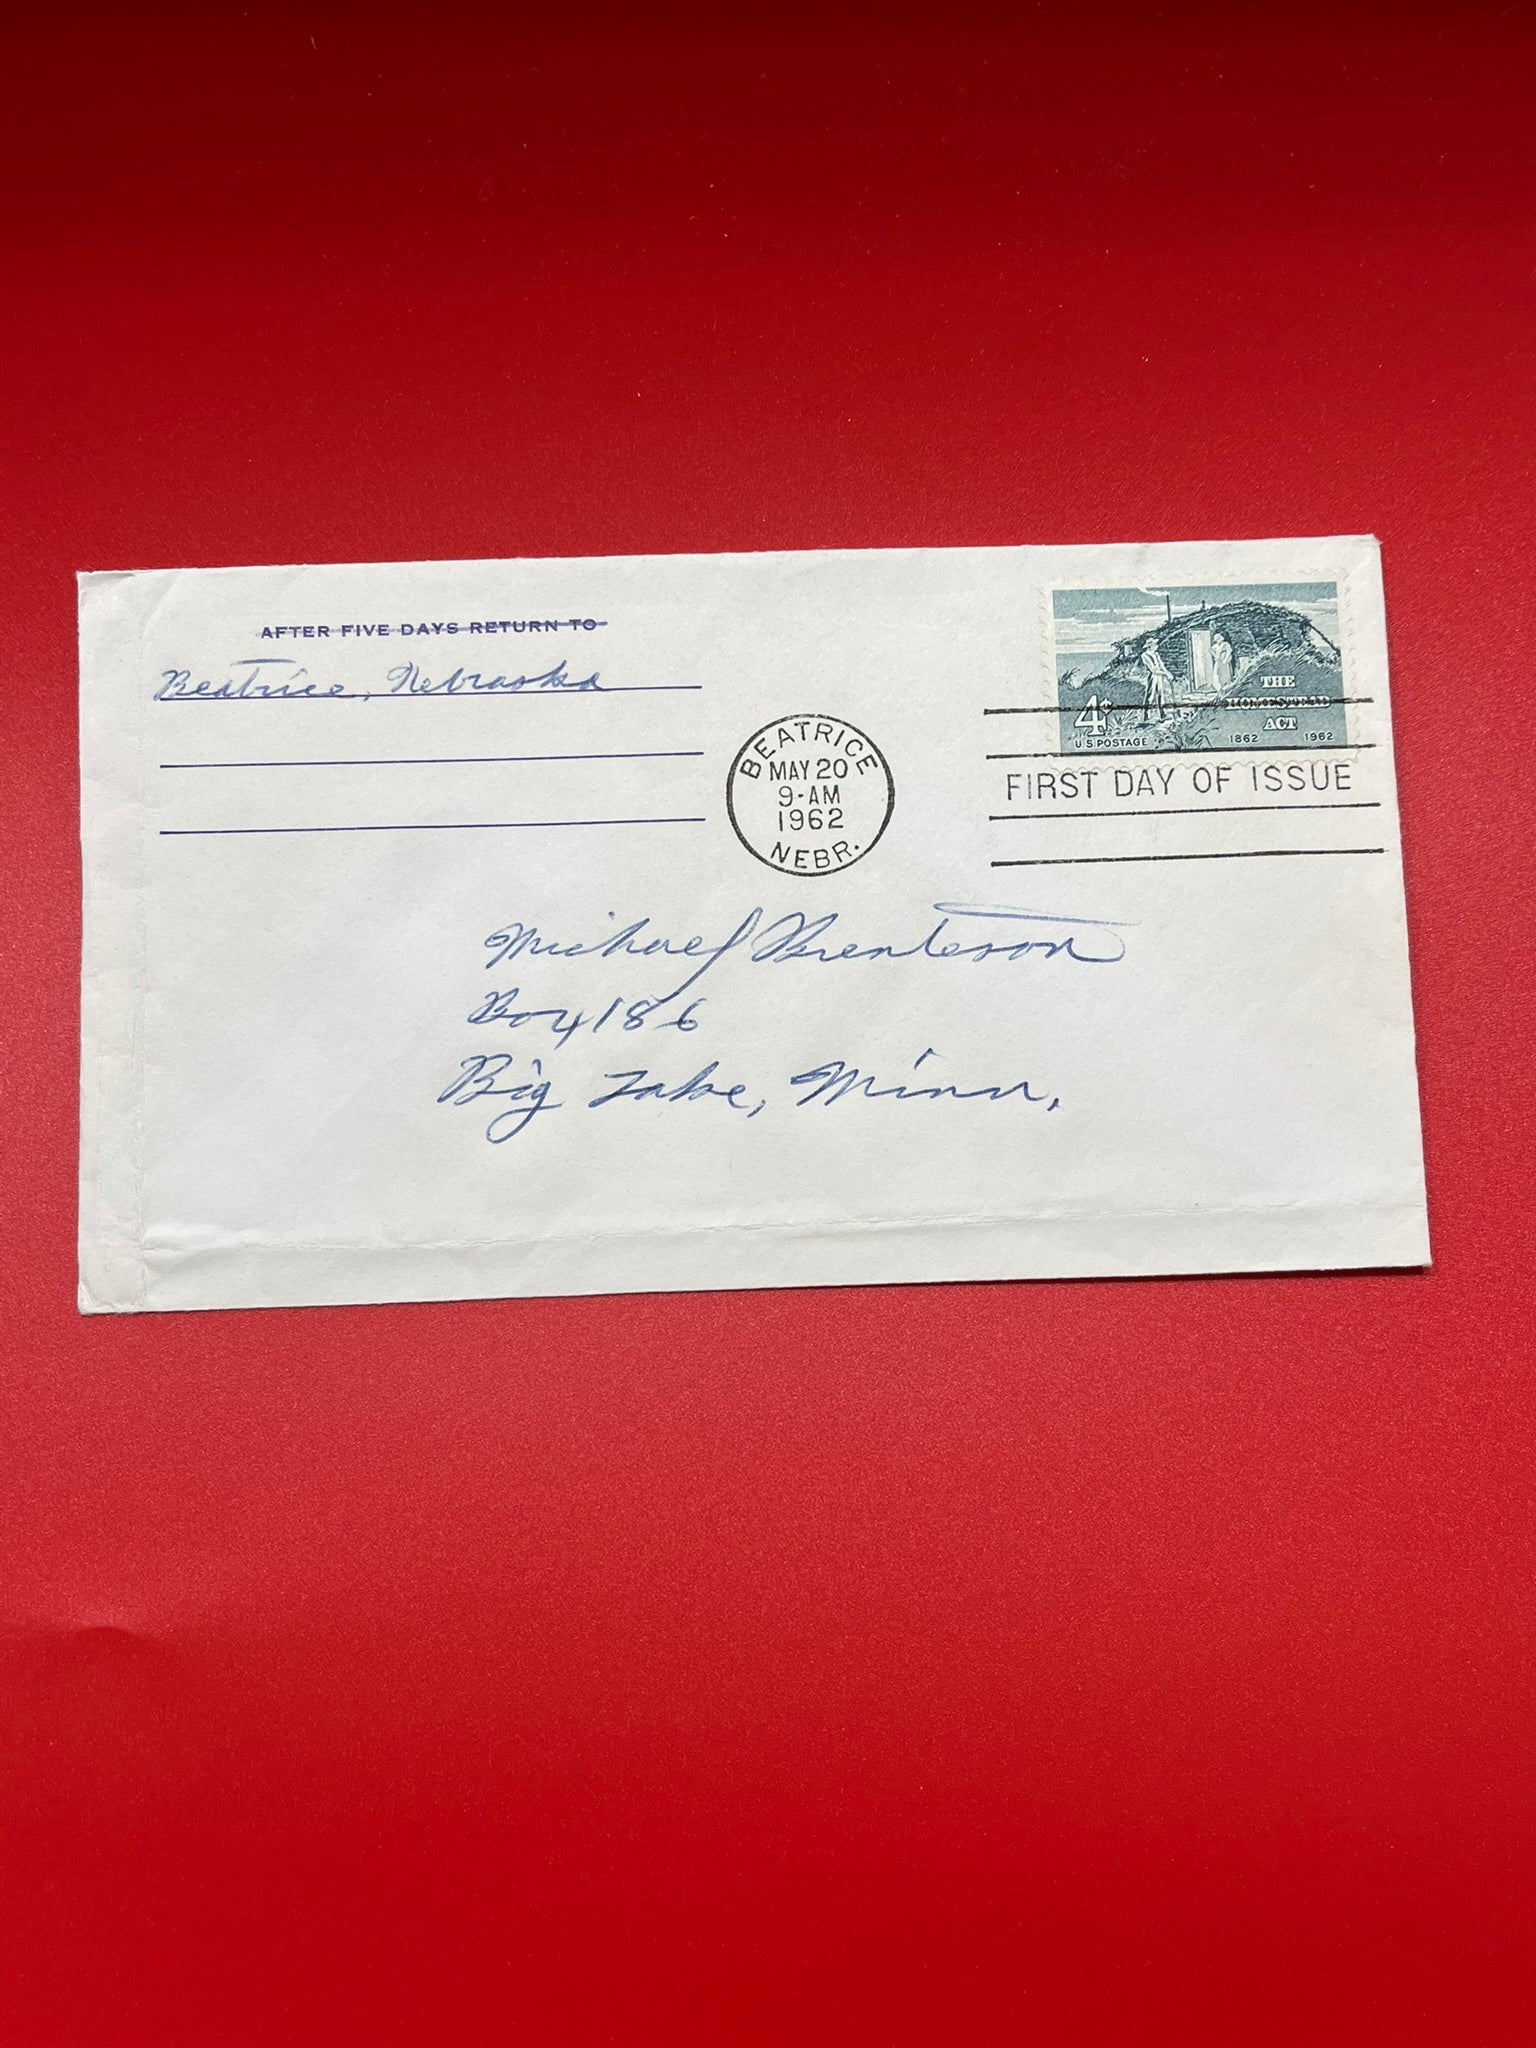 AFTER FIVE DAYS RETURN TO
Beatrice, Nebraska
THE
HOMESTEAD
ACT
4¢
U.S. POSTAGE
1862 1962
BEATRICE
MAY 20
9-AM
1962
NEBR.
FIRST DAY OF ISSUE
Michael
Box 186
Big Lake, Minn.